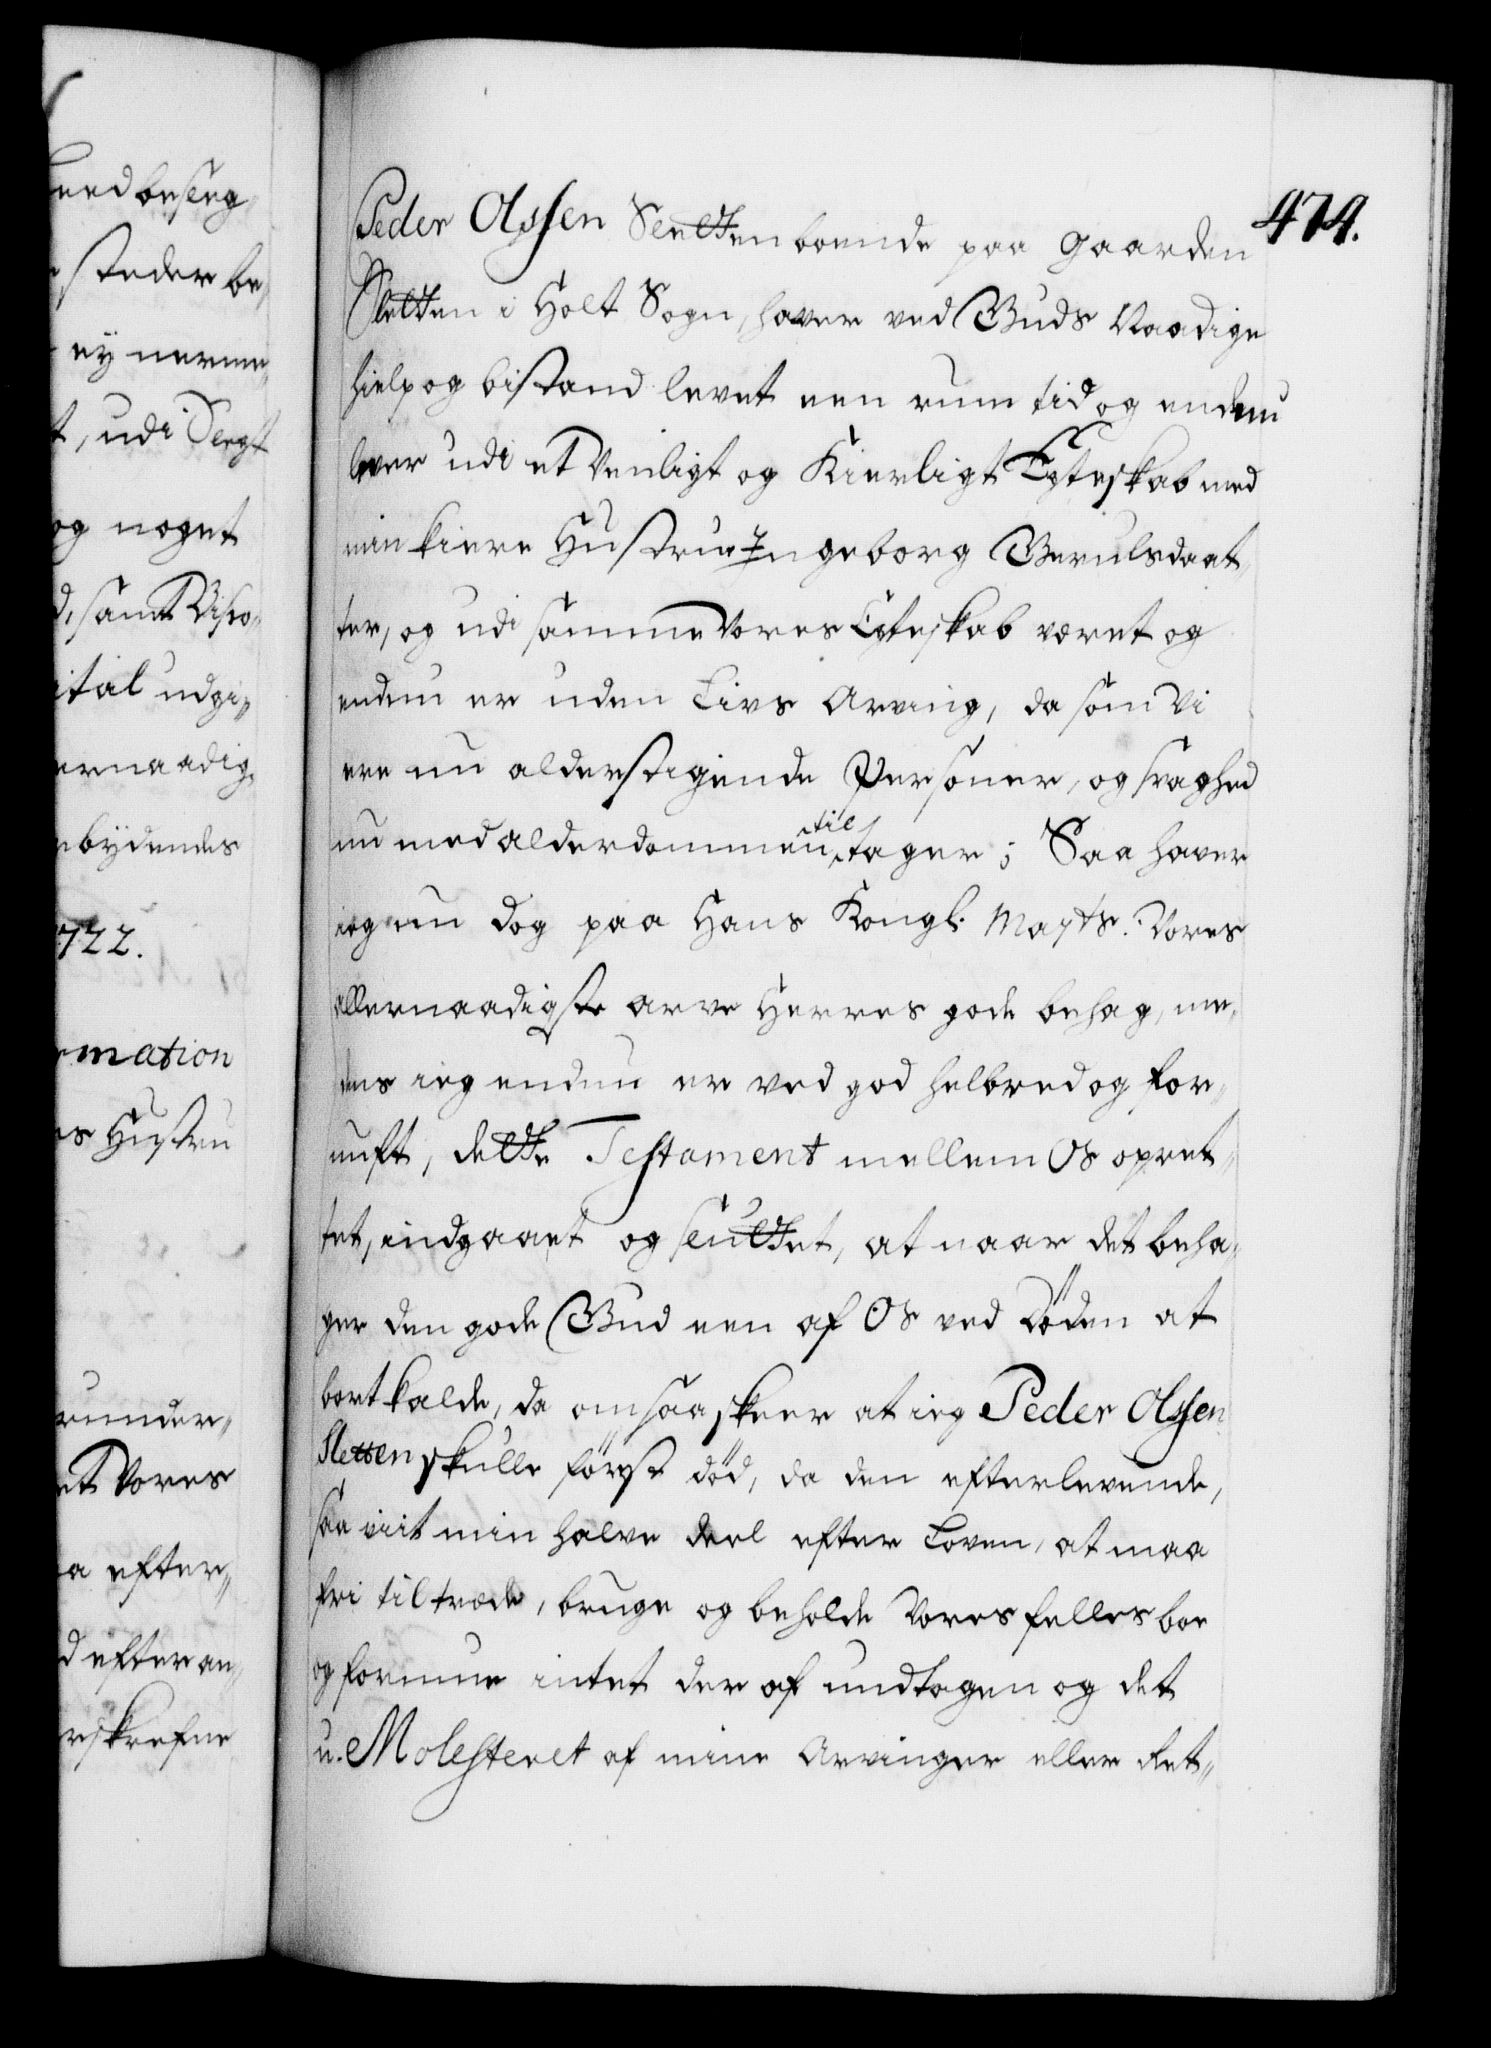 eed besteg
steder be„
ey nerme„
t, udi Slegt
og noget
d, samt Disco„
ital udgi„
ernaadig„
ebÿdendes
722.
mation
es Hustru
runder„
et vores
a efter„
d efter an„
rskrefne
474.
Peder Olssen Sletten boende paa gaarden
Sletten i Holt Sogn, haver ved Guds Naadige
hielp og bistand levet een rum tid og endnu
lever udi et venligt og Kierligt Egteskab med
min kiere Hustrue Ingeborg Gerulsdaat„
ter, og udi samme vores Egteskab veret og
endnu er uden Livs Arving, da som vi
ere nu alderstigende Personer, og svaghed
nu med alderdommen til tager; Saa haver
ieg nu dog paa Hans Kongl. Mayts. vores
allernaadigste arve Herres gode behag, me„
dens ieg endnu er ved god helbred og for„
nuft, dette Testament mellem Os opret„
tet, indgaaet og sluttet, at naar det beha„
ger den gode Gud een af Os ved Döden at
bortkalde, da om saa skeer at ieg Peder Olssen
Sletten skulle först död, da den efterlevende,
saa viit min halve deel efter Loven, at maa
fri tiltræde, bruge og beholde vores felles boe
og formue intet der af undtagen og det
u-Molesteret af mine Arvinger eller Ret„